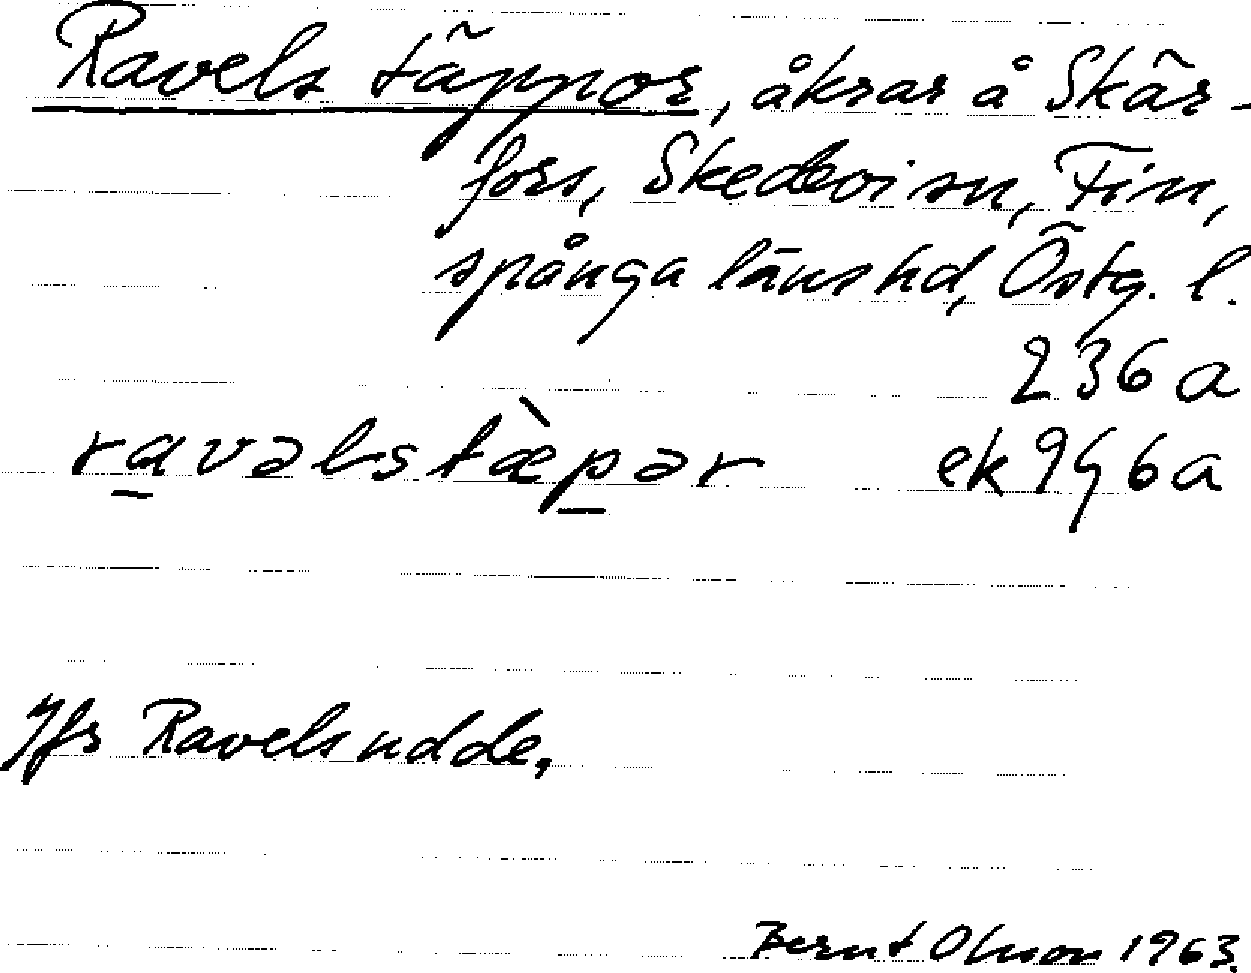 Ravels täppor, åkrar å Skär-
fors, Skedevi sn, Fin,
spånga länshd, Östg. l.
236 a
ravəlstæ̀pər ek 946a
Jfr Ravelsudde,
Bernt Olsson 1963.